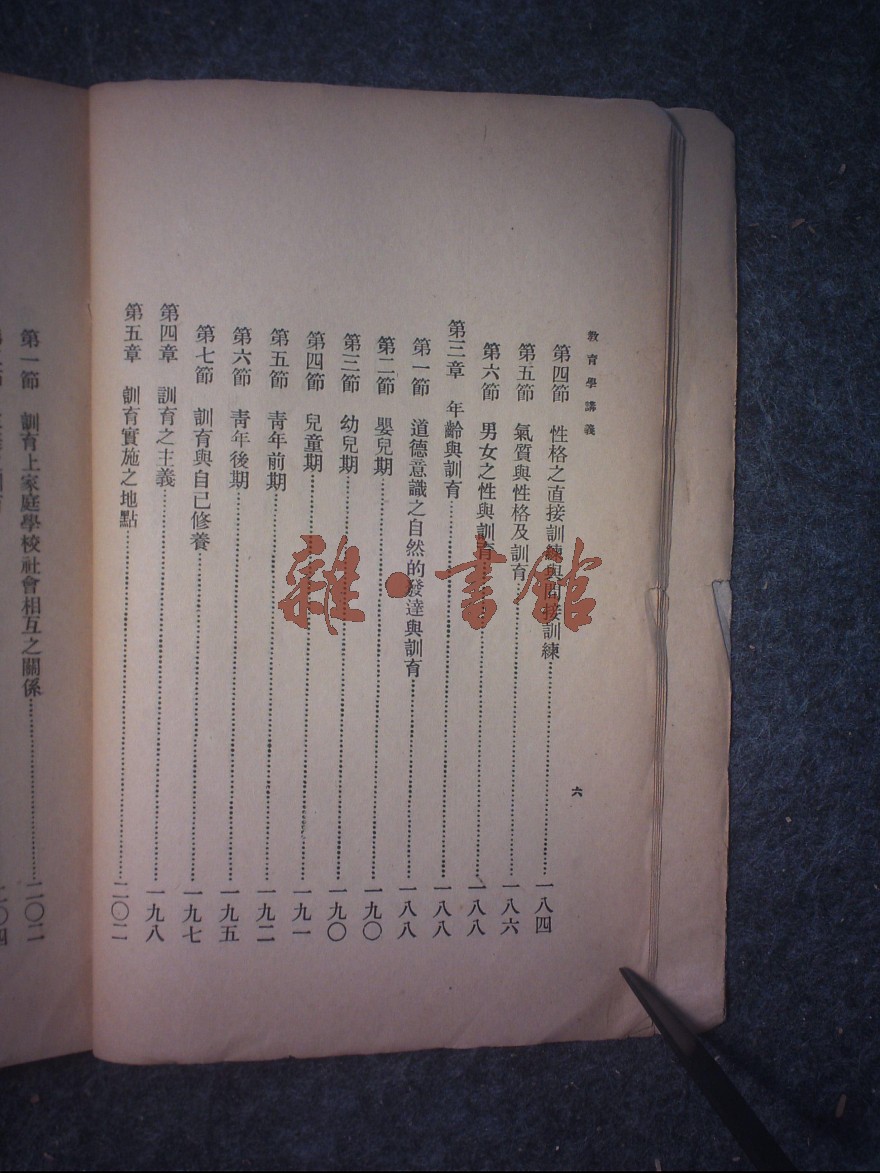 教育學講義
六
第四節 性格之直接訓練與間接訓練……一八四
第五節 氣質與性格及訓育……一八六
第六節 男女之性與訓育……一八八
第三章 年齡與訓育……一八八
第一節 道德意識之自然的發達與訓育……一八八
第二節 嬰兒期……一九〇
第三節 幼兒期……一九〇
第四節 兒童期……一九一
第五節 靑年前期……一九二
第六節 靑年後期……一九五
第七節 訓育與自己修養……一九七
第四章 訓育之主義……一九八
第五章 訓育實施之地點……二〇二
第一節 訓育上家庭學校社會相互之關係……二〇二
二〇四
雜·書館